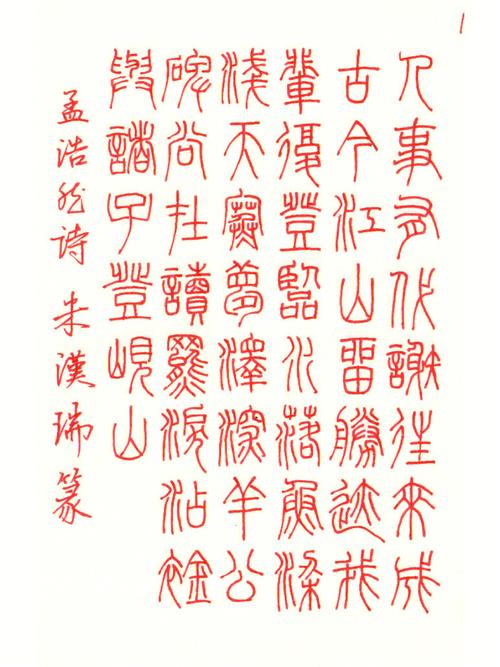 1
人事有代謝往來成
古今江山留勝迹我
輩復登臨水落魚梁
淺天寒夢澤深羊公
碑尚在讀罷淚沾襟
與諸子登峴山
孟浩然詩 朱漢瑞篆